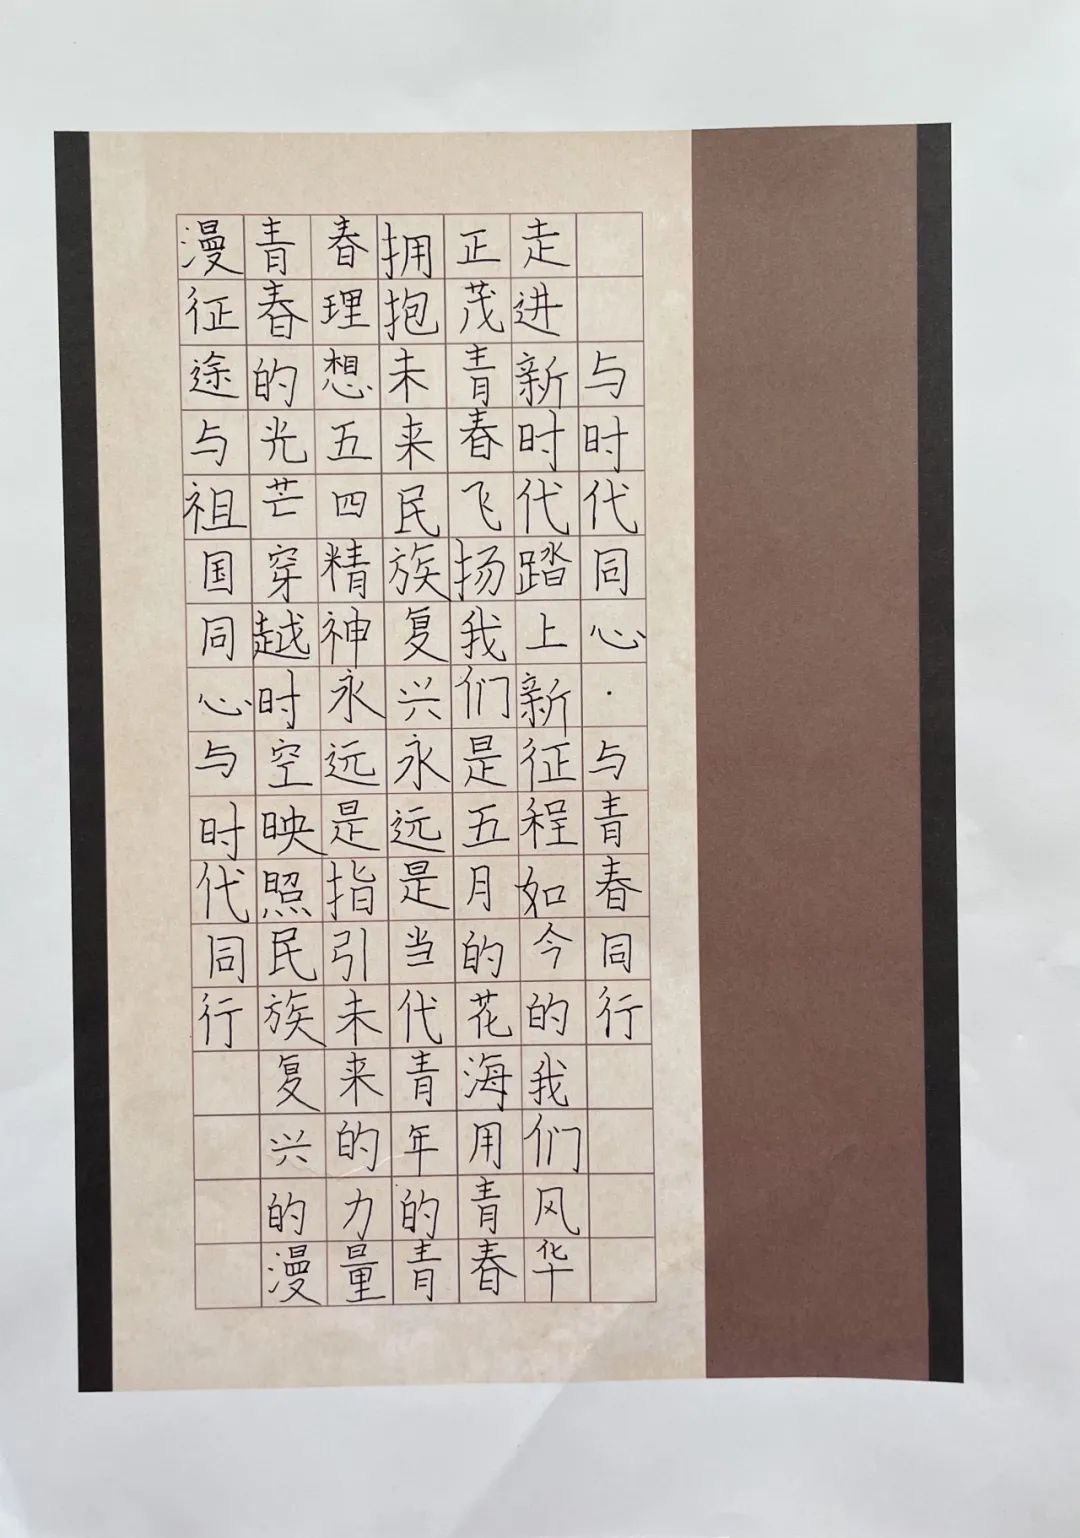 与时代同心·与青春同行
走进新时代踏上新征程如今的我们风华
正茂青春飞扬我们是五月的花海用青春
拥抱未来民族复兴永远是当代青年的青
春理想五四精神永远是指引未来的力量
青春的光芒穿越时空映照民族复兴的漫
漫征途与祖国同心与时代同行